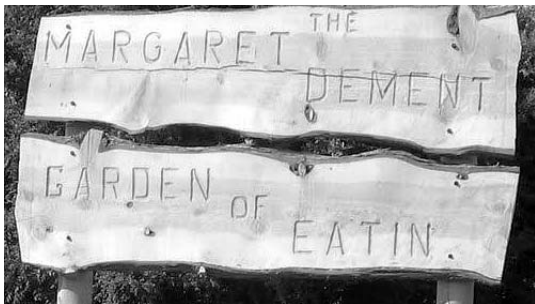 THE
MARGARET
DEMENT
GARDEN
OF
EATIN